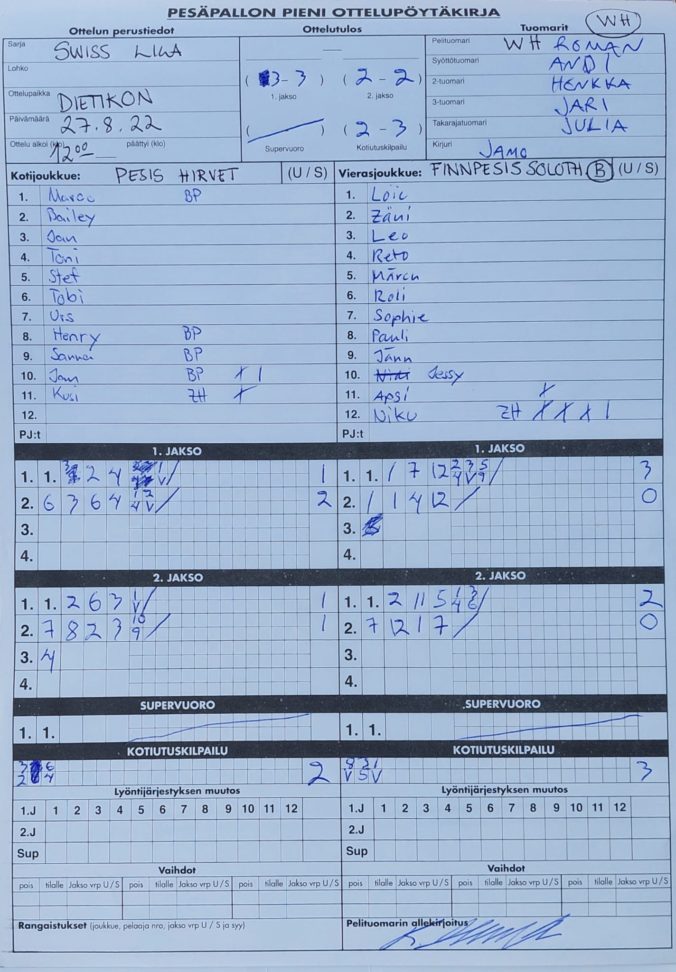 PESÄPALLON PIENI OTTELUPÖYTÄKIRJA
WH
Ottelun perustiedot
Ottelutulos
Tuomarit
Sarja SWISS LIGA
Lohko
Ottelupaikka DIETIKON
Päivämäärä 27.8.22
Ottelu alkoi (klo) 12.00 päättyi (klo)
(3-3) (2-2)
1. jakso 2. jakso
( ) (2-3)
Supervuoro Kotiutuskilpailu
Pelituomari WH ROMAN
Syöttötuomari ANDI
2-tuomari HENKKA
3-tuomari JARI
Takarajatuomari JULIA
Kirjuri JAMO
Kotijoukkue: PESIS HIRVET (U / S)
1. Marco BP
2. Bailey
3. Jan
4. Toni
5. Stef
6. Tobi
7. Urs
8. Henry BP
9. Sanna BP
10. BP X I
11. Kusi ZH X
12.
PJ:t
Vierasjoukkue: FINNPESIS SOLOTH B (U / S)
1. Loïc
2. Zäni
3. Leo
4. Reto
5. Märcu
6. Roli
7. Sophie
8. Pauli
9. Jänn
10. Jessy
11. Apsi X
12. Niku ZH X X X I
PJ:t
1. JAKSO
1. 1. 2 4 V/ 1
2. 6 3 6 4 1 2 4 V / 2
3.
4.
1. JAKSO
1. 1. 1 7 12 2 3 5 4 V 9 / 3
2. 1 1 4 12 / 0
3.
4.
2. JAKSO
1. 1. 2 6 3 1 V / 1
2. 7 8 2 3 10 9 / 1
3. 4
4.
2. JAKSO
1. 1. 2 11 5 1 3 4 6 / 2
2. 7 12 1 7 / 0
3.
4.
SUPERVUORO
1. 1.
SUPERVUORO
1. 1.
KOTIUTUSKILPAILU
3 6
2 4 2
KOTIUTUSKILPAILU
8 2 1
V 5 V 3
Lyöntijärjestyksen muutos
1.J 1 2 3 4 5 6 7 8 9 10 11 12
2.J
Sup
Lyöntijärjestyksen muutos
1.J 1 2 3 4 5 6 7 8 9 10 11 12
2.J
Sup
Vaihdot
pois tilalle Jakso vrp U / S pois tilalle Jakso vrp U / S pois tilalle Jakso vrp U / S
Vaihdot
pois tilalle Jakso vrp U / S pois tilalle Jakso vrp U / S pois tilalle Jakso vrp U / S
Rangaistukset (joukkue, pelaaja nro, jakso vrp U / S ja syy)
Pelituomarin allekirjoitus